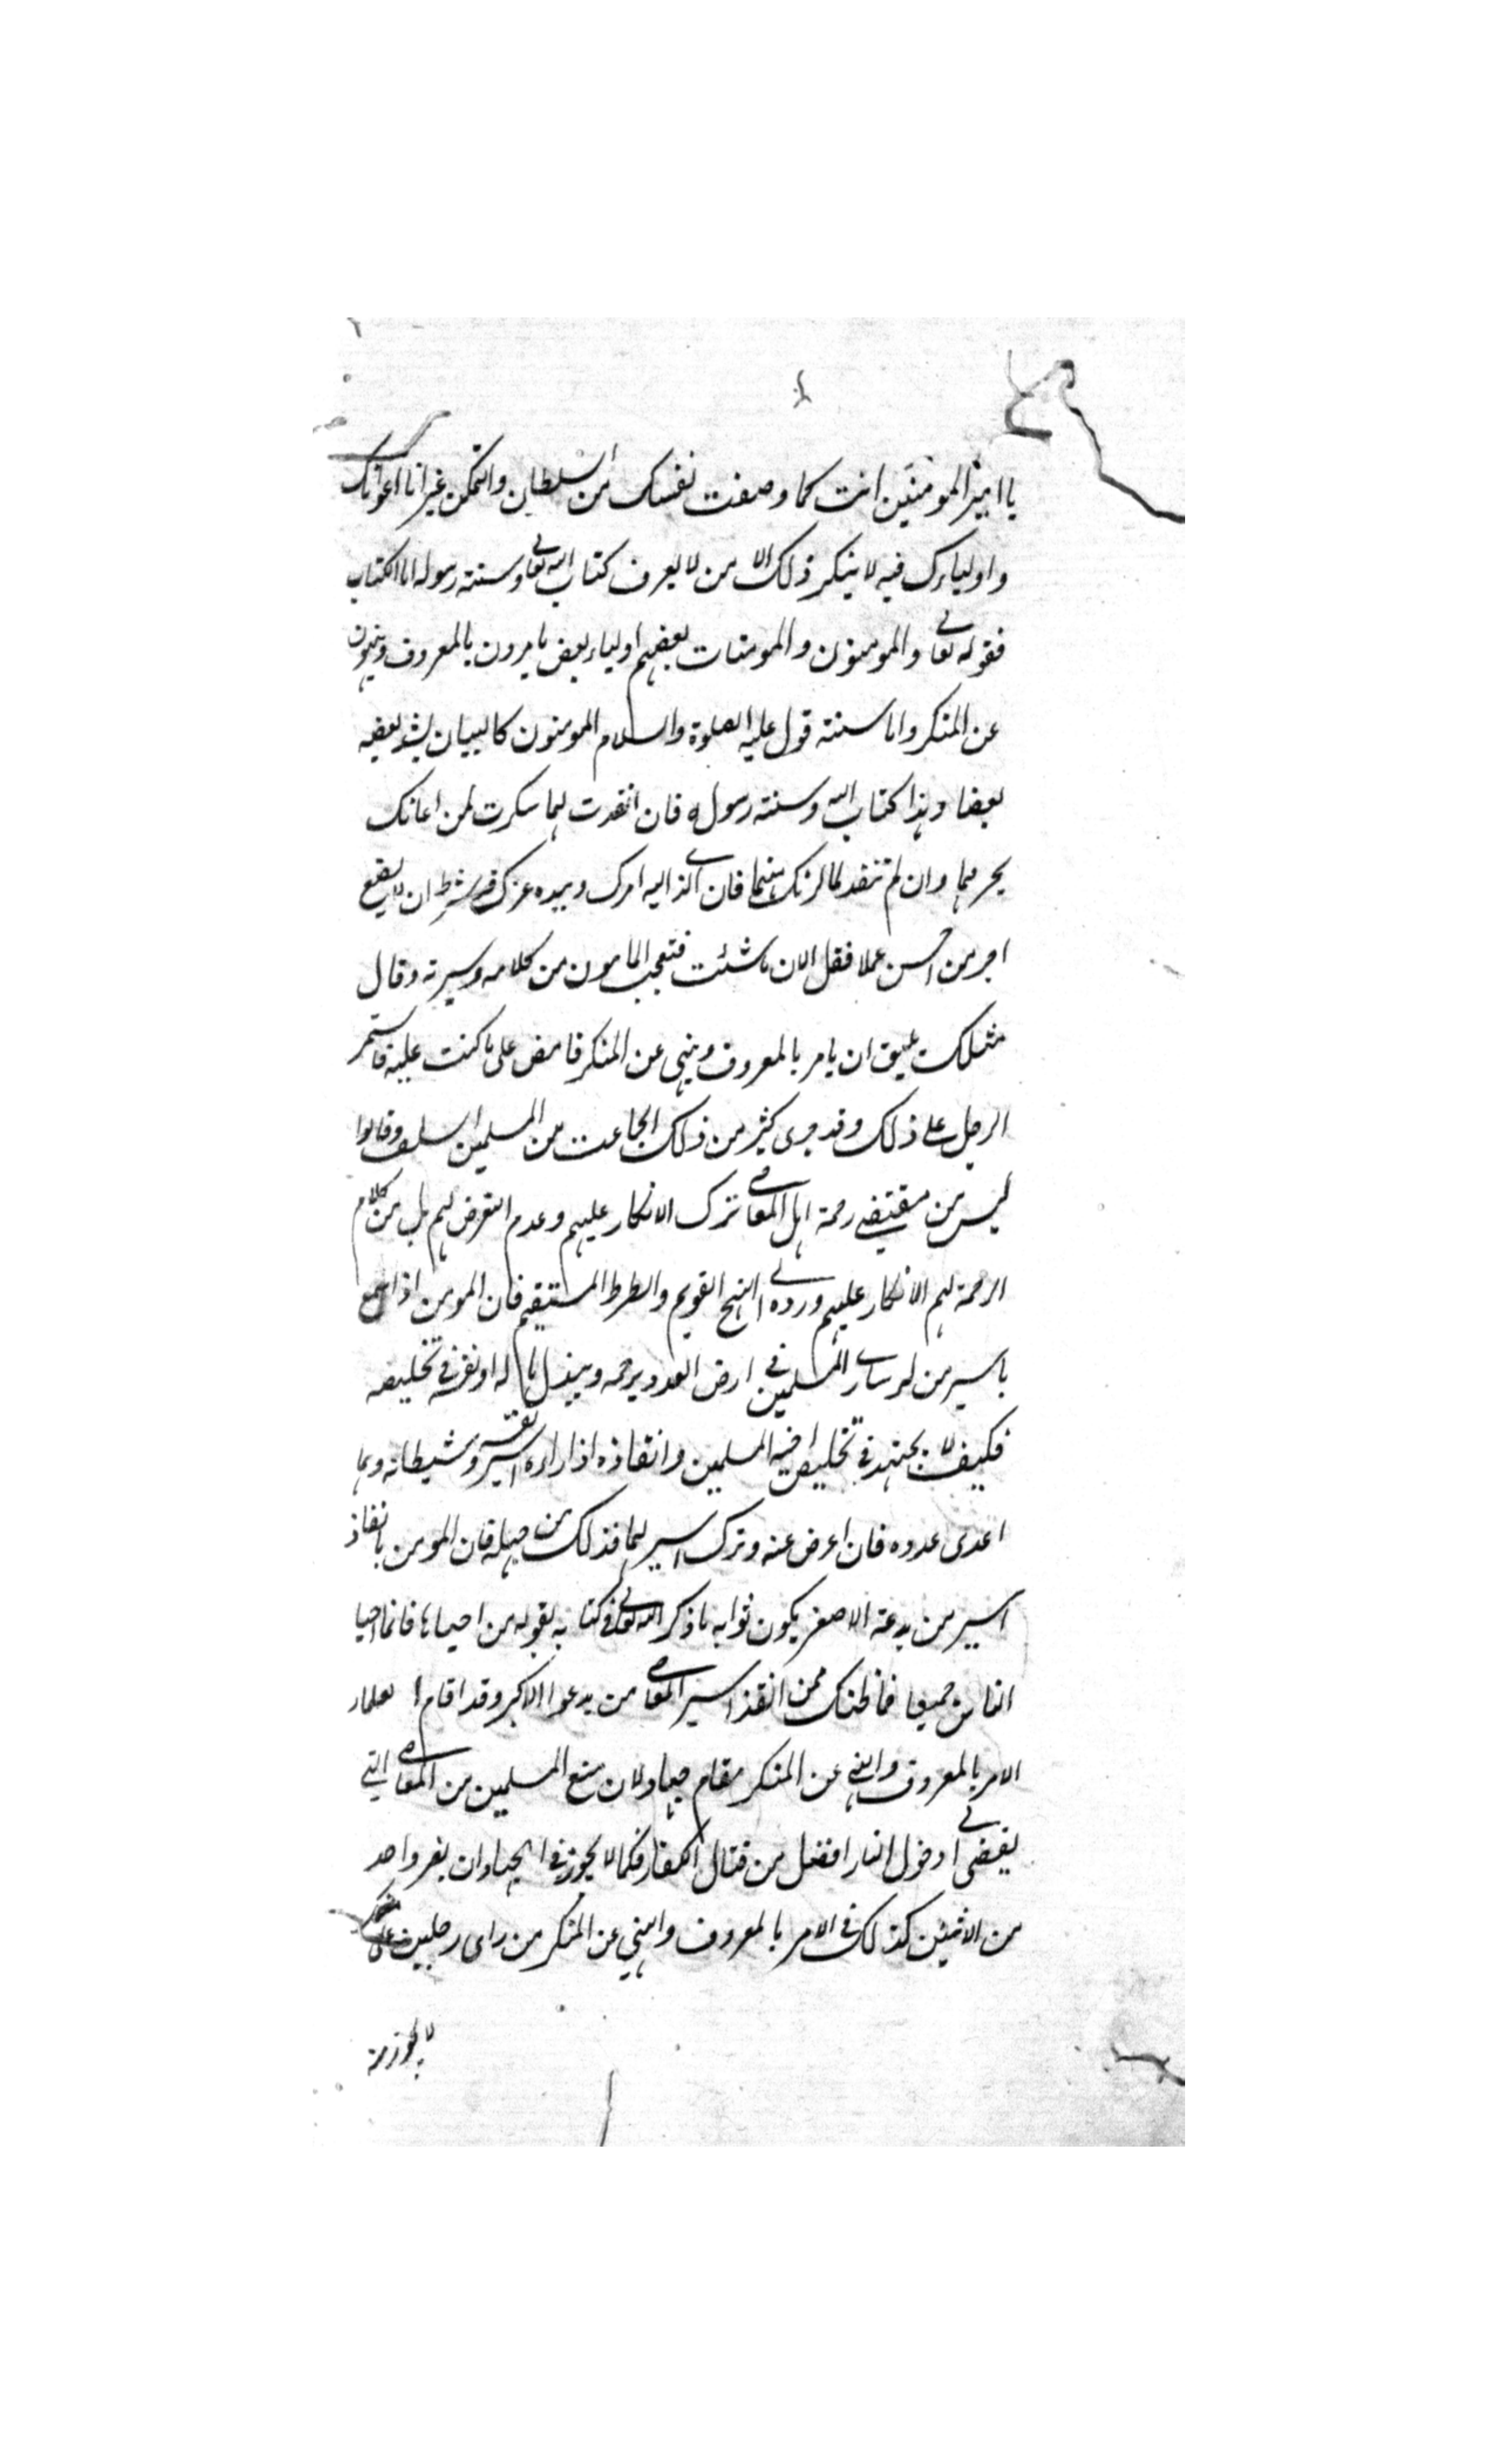 يا امير المومنين انت كما وصفت نفسك من السلطان والتمكن غير انا اعوانك
واولياءك فيه لا ينكر ذلك الا من لا يعرف كتاب الله تعالى وسنته رسوله اما الكتاب
فقوله تعالى والمومنون والمومنات بعضهم اولياء بعض يامرون بالمعروف وينهون
عن المنكر واما سنته قول عليه الصلوة والسلام المومنون كالبيان يشد بعضه
بعضا وهذا كتاب الله وسنته رسوله فان انقدت لهما شكرت لمن اعانك
بحرمهما وان لم تنقد لما لزمك منهما فان الذى اليه امرك وبيده عزك قد شرط ان لا يضيع
اجر من احسن عملا فقل الان ما شئت فتعجب المامون من كلامه وسيرته وقال
مثلك يليق ان يامر بالمعروف وينهى عن المنكر فامض على ما كنت عليه فاستمر
الرجل على ذلك وقد جرى كثير من ذلك الجماعت من المسلمين السلف وقالوا
ليس من مقتضى رحمة اهل المعاصى ترك الانكار عليهم وعدم التعرض لهم بل من كلام
الرحمة لهم الانكار عليهم ورده الى النهج القويم والصرط المستقيم فان المومن اذا سمع
باسير من اسارى المسلمين فى ارض العدو يرحمه ويبذل ماله او نفسه فى تخليصه
فكيف لا يجتهد فى تخليص اخيه المسلمين وانقاذه اذا راه اسير نفسه وشيطانه وهما
اعدى عدوه فان اعرض عنه وترك اسير لهما فذلك من جهله فان المومن بانقاذ
اسير من يدعة الاصغر يكون ثوابه ما ذكر الله تعالى فى كتابه بقوله من احياها فانما احيا
الناس جميعا فما ظنك ممن انقذ اسير المعاصى من يد عدوا الاكبر وقد اقام العلماء
الامر بالمعروف والنهى عن المنكر مقام جهاد لان منع المسلمين من المعاصى التى
يفضى الى دخول النار افضل من قتال الكفار فكما لا يجوز فى الجهاد ان يفر واحد
من الاثنين كذلك فى الامر بالمعروف والنهي عن المنكر من راى رجلين على منكر
لا يجوز منه